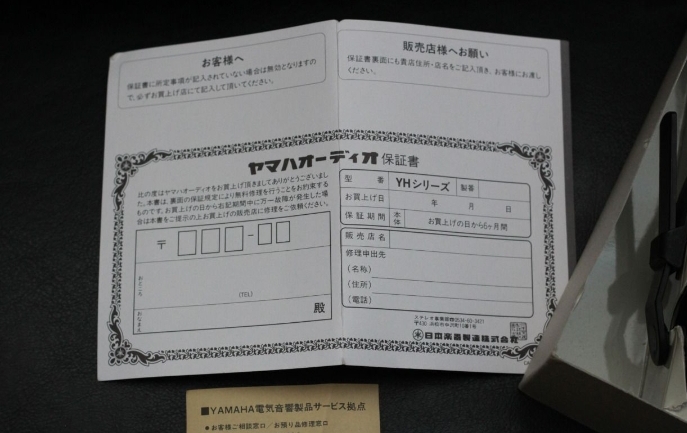 お客様へ
保証書に所定事項が記入されていない場合は無効となりますの
で、必ずお買上げ店にて記入して頂いてください。
販売店様へお願い
保証書裏面にも貴店住所・店名をご記入頂き、お客様にお渡し
ください。
ヤマハオーディオ保証書
此の度はヤマハオーディオをお買上げ頂きましてありがとうございまし
た。本書は、裏面の保証規定により無料修理を行うことをお約束する
ものです。お買上げの日から右記期間中に万一故障が発生した場
合は本書をご提示の上お買上げの販売店に修理をご依頼ください。
〒
おところ
(TEL)
おなまえ
殿
型番 YHシリーズ 製番
お買上げ日 年 月 日
保証期間 本体 お買上げの日から6ヶ月間
販売店名
修理申出先
(名称)
(住所)
(電話)
日本楽器製造株式会社
■YAMAHA電気音響製品サービス拠点
●お客様ご相談窓口/お預り品修理窓口